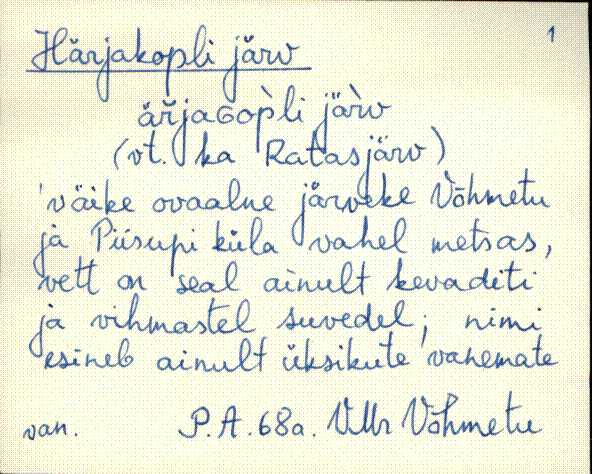 1
Härjakopli järv
äřjaGop̀li jär̀v
(vt. ka Ratasjärv)
väike ovaalne järveke Võhmetu
ja Piisupi küla vahel metsas,
vett on seal ainult kevaditi
ja vihmastel suvedel; nimi
esineb ainult üksikute vanemate
van. P.A. 68a. VMr Võhmetu